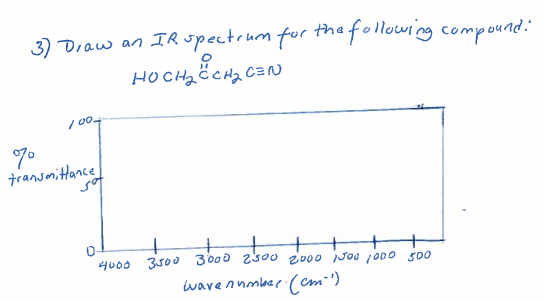 3) Draw an IR spectrum for the following compound:
O
HOCH2CCH2C≡N
100
%
transmittance
50
0
4000 3500 3000 2500 2000 1500 1000 500
wavenumber (cm⁻¹)